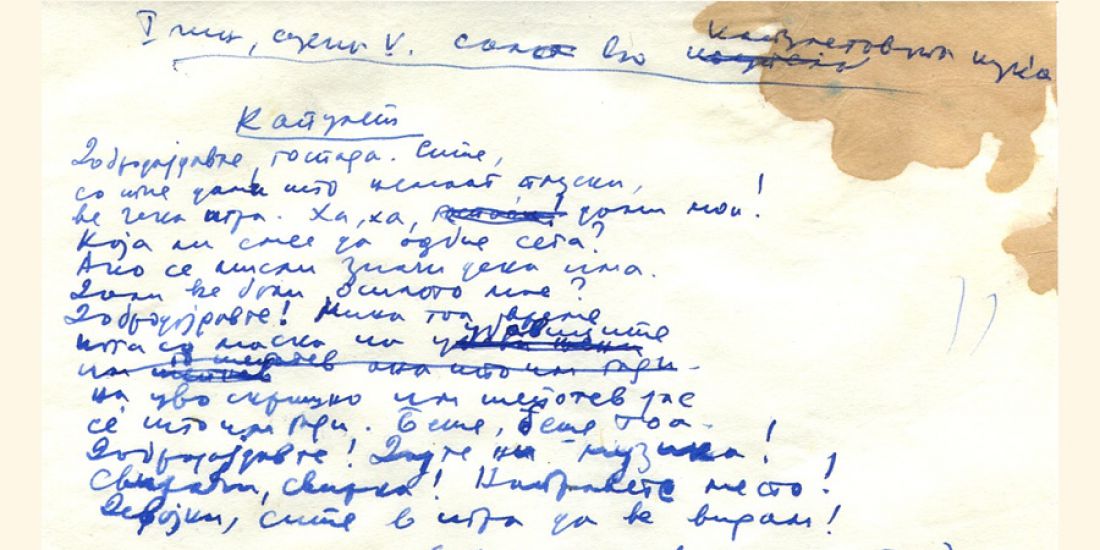 I чин, сцена V. Сала во Капулетовата куќа
Капулет
Добродојдовте, господа. Сите,
со тие дами што немаат плускци,
ве чека игра. Ха, ха, дами мои!
Која ли смее да одбие сега?
Ако се мисли значи дека има.
Добродојдовте! Мина тоа време
кога со маска на убавиците
на уво скришно им шепотев јас
сѐ што им годи. Беше, беше тоа.
Добродојдовте! Дајте ни музика!
Свирачи, свирка! Направете место!
Девојки, сите в игра да ве видам!